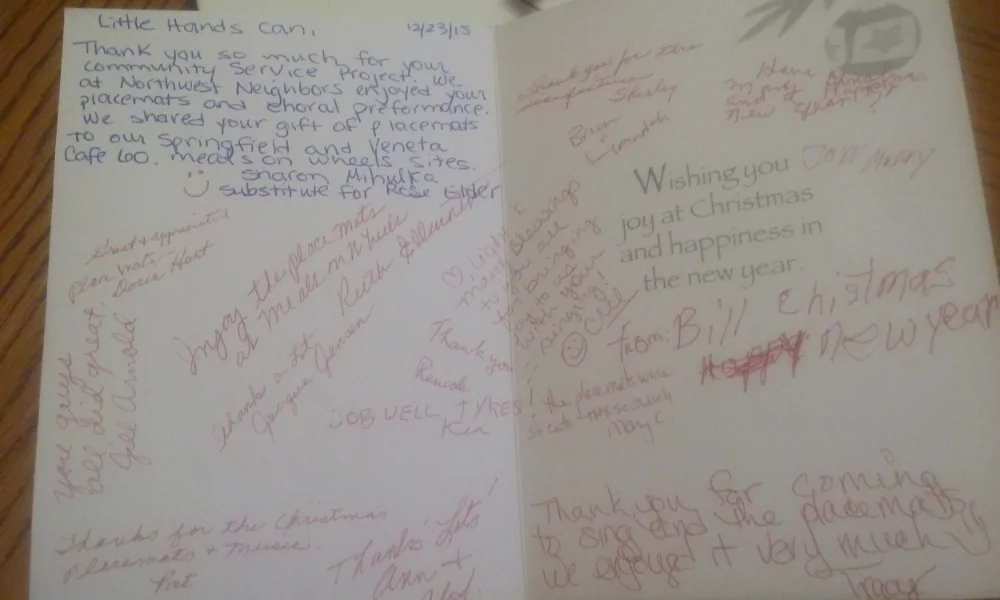 Little Hands Can,
12/23/15
Thank you so much for your
community Service Project. We
at Northwest Neighbors enjoyed your
placemats and choral preformance.
We shared your gift of placemats
to our Springfield and Veneta
Cafe 60. meals on wheels sites.
Sharon Mihulka
substitute for Rose Elder
Great + appreciated
place mats
Doris Hart
Injoy the place mats
at Meals on Wheels
Ruth
you guys
all did great.
Jill Arnold
Thanks a lot
Jensen
Thank you
JOB WELL
Ken
Thanks for the Christmas
placemats + Music.
Pat
Thanks Lots!
Ann +
Thank you for the
Shirley
Brian
Have
and a Happy
New Year!
many Blessings
to you all
for bringing
joy to us
with your
singing!
Wishing you
joy at Christmas
and happiness in
the new year.
From: Bill Christmas
Happy new year
the place mats were
so cute
Mary C
Thank you for coming
to sing and the placemats
we enjoyed it very much
Tracy